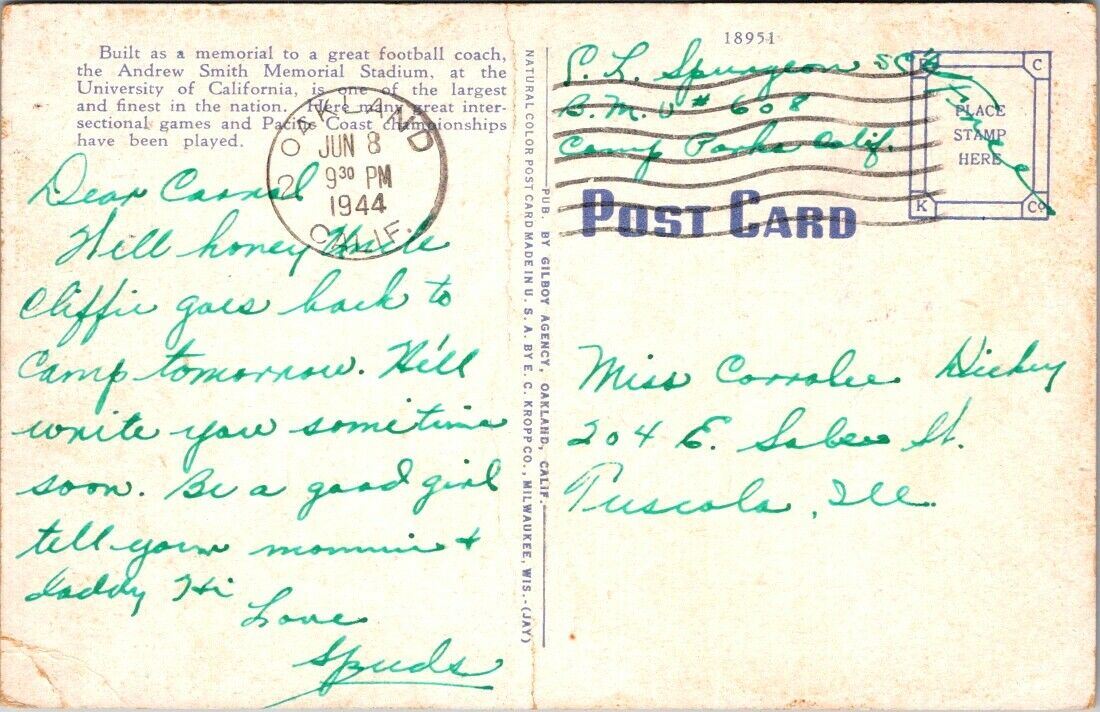 Built as a memorial to a great football coach,
the Andrew Smith Memorial Stadium, at the
University of California, is one of the largest
and finest in the nation. Here many great inter-
sectional games and Pacific Coast championships
have been played.
Dear Carral
Well honey Uncle
Cliffie goes back to
Camp tomorrow. He'll
write you sometime
soon. Be a good girl
tell your mommie +
daddy Hi
Love
Spuds
OAKLAND
2
JUN 8
9 30 PM
1944
CALIF.
NATURAL COLOR POST CARD MADE IN U. S. A. BY E. C. KROPP CO., MILWAUKEE, WIS.-(JAY)
PUB. BY GILBOY AGENCY, OAKLAND, CALIF.
18951
Spurgeon
B.M.U # 608
Camp Parks Calif.
Free
C
PLACE
STAMP
HERE
K
Co
POST CARD
Miss Corralee Hickey
204 E. St.
Tuscola, Ill